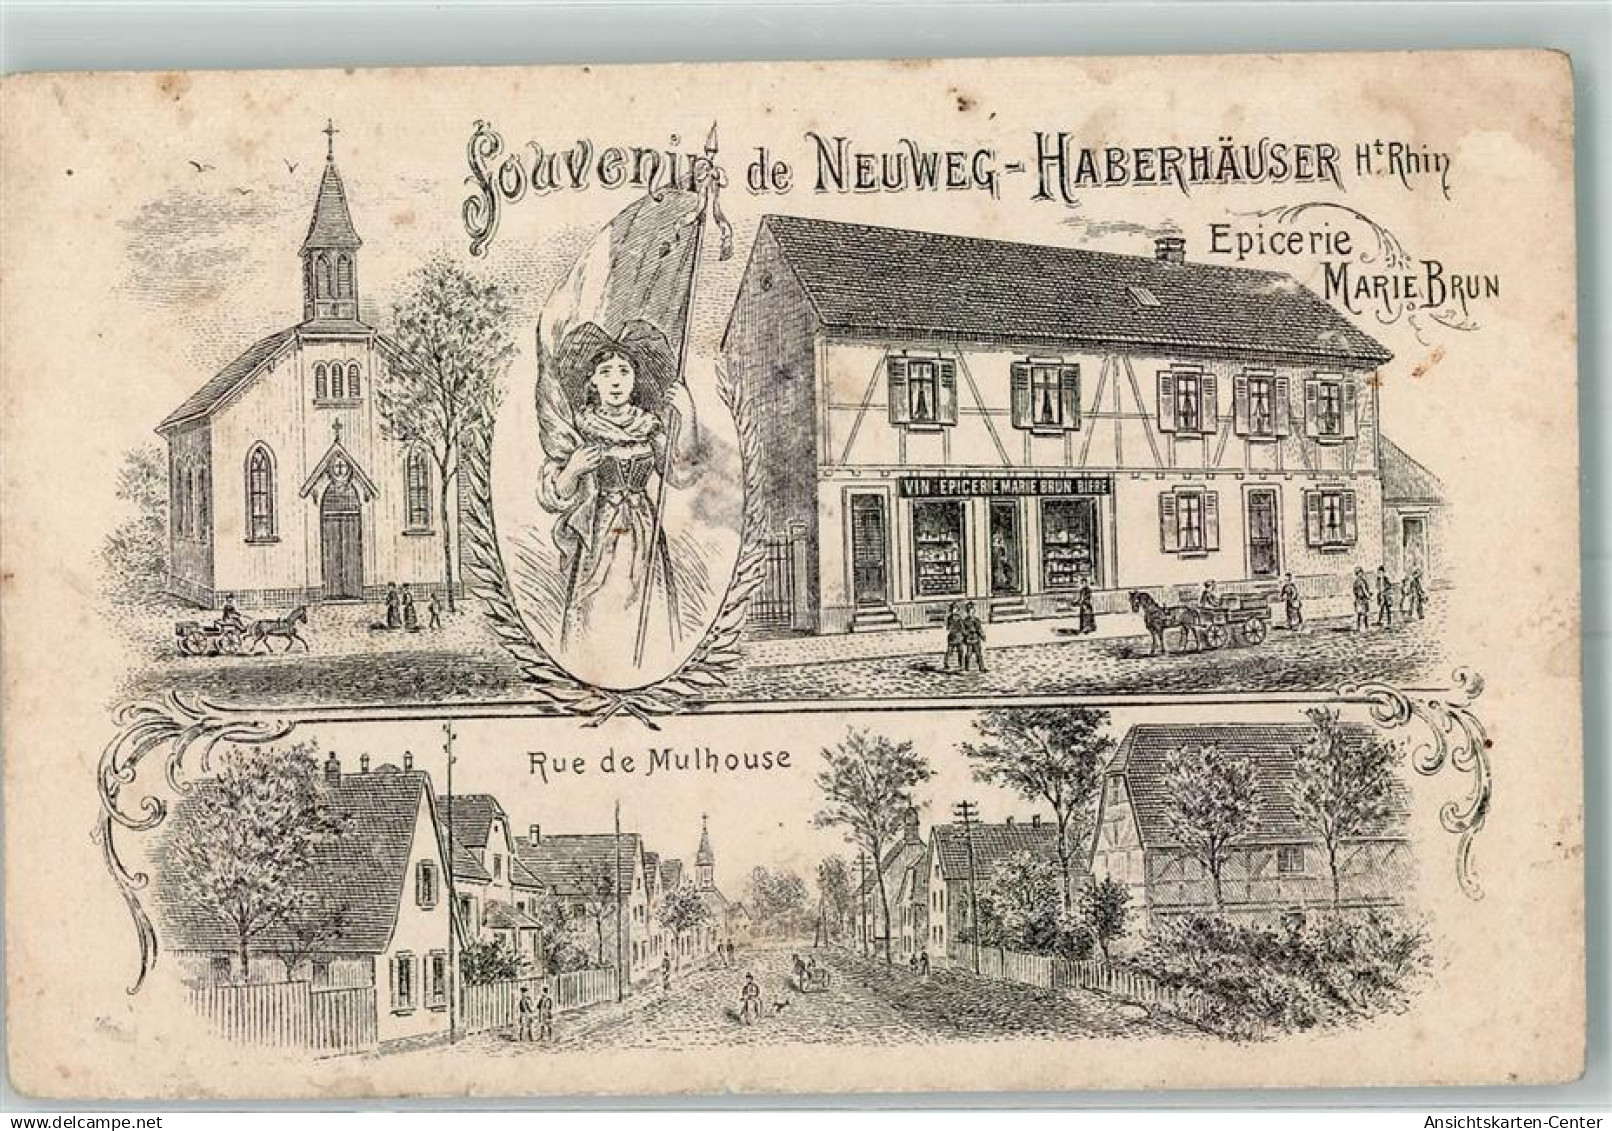 Souvenir de NEUWEG-HABERHÄUSER Ht. Rhin
Epicerie
MARIE BRUN
VIN EPICERIE MARIE BRUN BIERE
Rue de Mulhouse
Ansichtskarten-Center